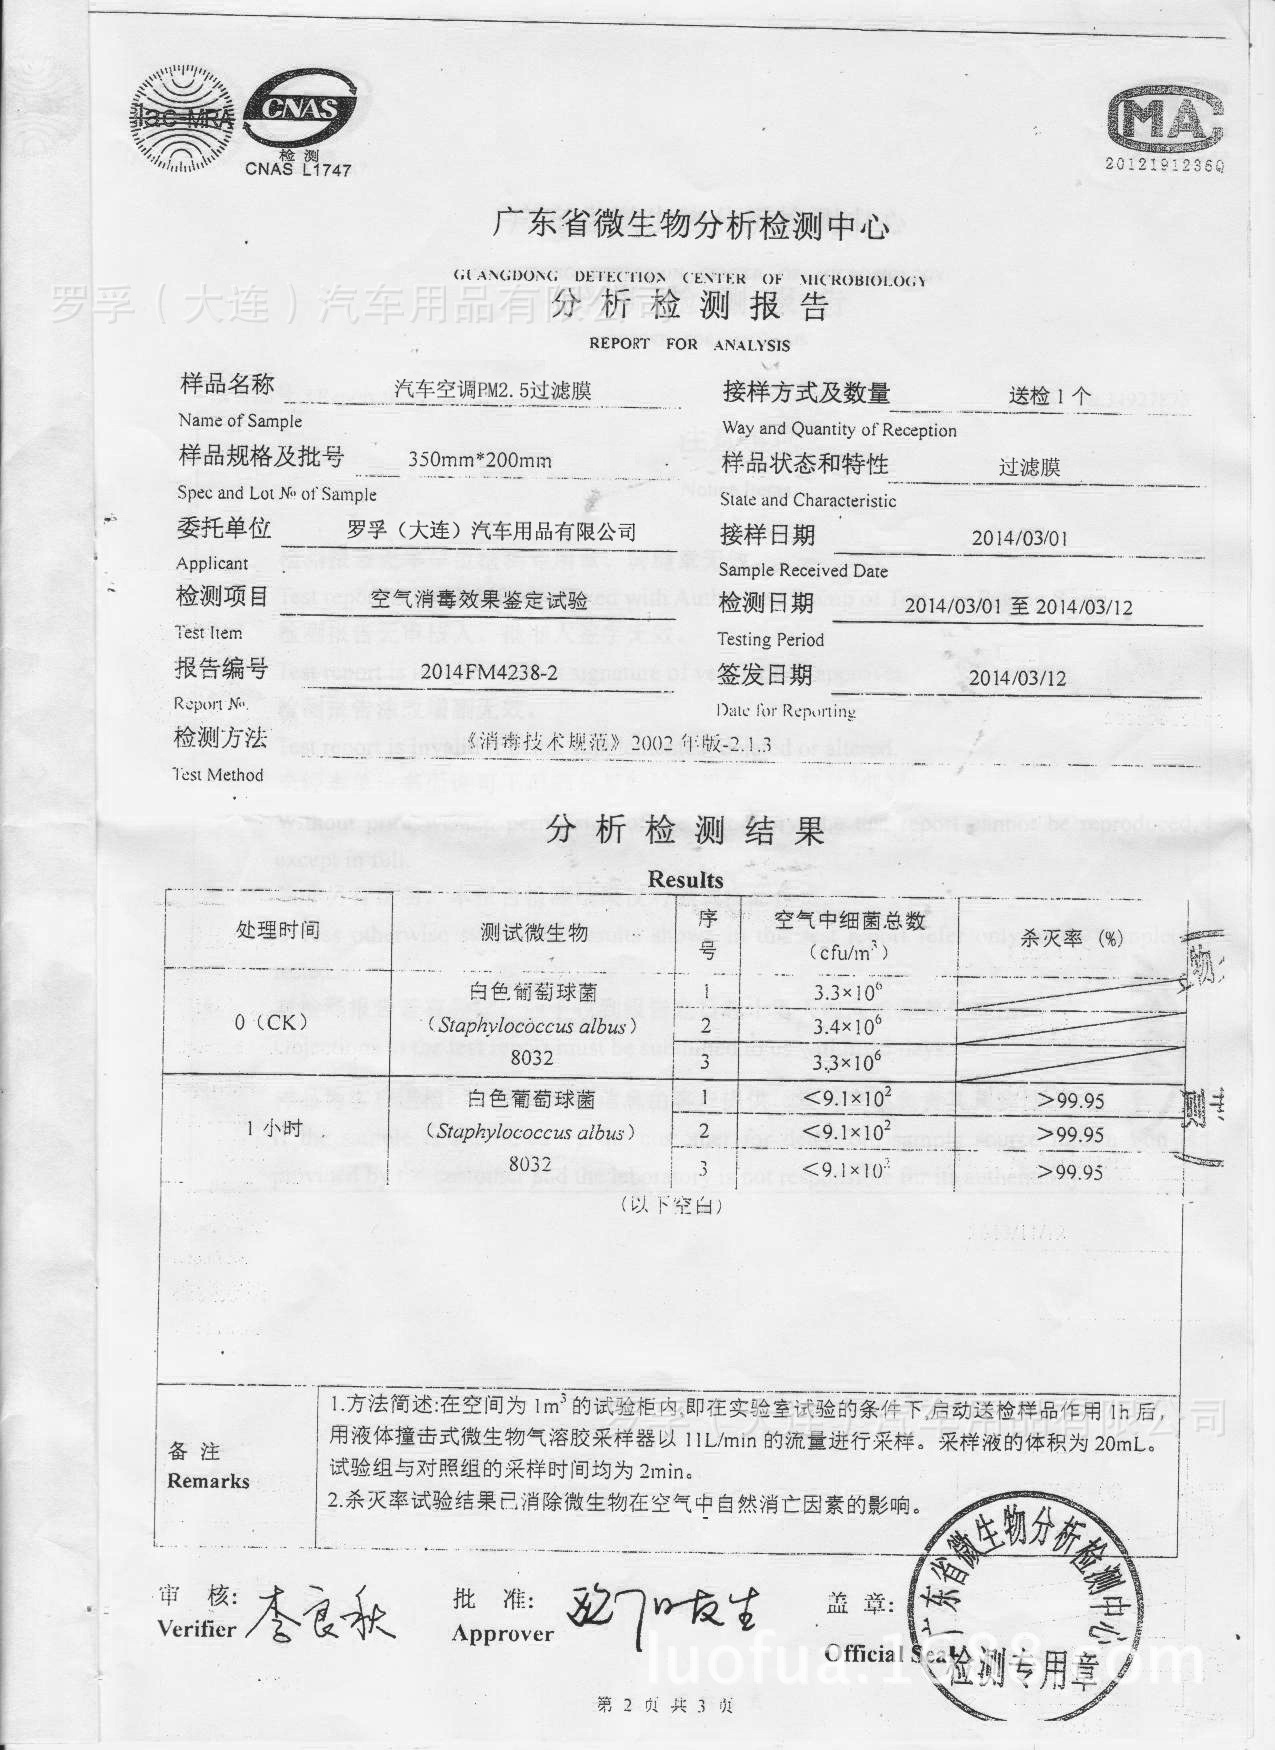 ilac-MRA
CNAS
检 测
CNAS L1747
MA
2012191236Q
广东省微生物分析检测中心
GUANGDONG DETECTION CENTER OF MICROBIOLOGY
罗孚（大连）汽车用品有限公司
分析检测报告
REPORT FOR ANALYSIS
样品名称 汽车空调PM2.5过滤膜 接样方式及数量 送检 1 个
Name of Sample Way and Quantity of Reception
样品规格及批号 350mm*200mm 样品状态和特性 过滤膜
Spec and Lot № of Sample State and Characteristic
委托单位 罗孚（大连）汽车用品有限公司 接样日期 2014/03/01
Applicant Sample Received Date
检测项目 空气消毒效果鉴定试验 检测日期 2014/03/01 至 2014/03/12
Test Item Testing Period
报告编号 2014FM4238-2 签发日期 2014/03/12
Report №. Date for Reporting
检测方法 《消毒技术规范》2002 年版-2.1.3
Test Method
分析检测结果
Results
处理时间 测试微生物 序号 空气中细菌总数（cfu/m³） 杀灭率（%）
0（CK） 白色葡萄球菌（Staphylococcus albus）8032 1 3.3×10⁶
2 3.4×10⁶
3 3.3×10⁶
1 小时 白色葡萄球菌（Staphylococcus albus）8032 1 <9.1×10² >99.95
2 <9.1×10² >99.95
3 <9.1×10² >99.95
（以下空白）
备 注
Remarks
1.方法简述:在空间为 1m³ 的试验柜内,即在实验室试验的条件下,启动送检样品作用 1h 后,
用液体撞击式微生物气溶胶采样器以 11L/min 的流量进行采样。采样液的体积为 20mL。
试验组与对照组的采样时间均为 2min。
2.杀灭率试验结果已消除微生物在空气中自然消亡因素的影响。
罗孚（大连）汽车用品有限公司
审 核: 李良秋 批 准: 盖 章:
Verifier Approver Official Seal
广东省微生物分析检测中心
检测专用章
luofua.1688.com
第 2 页 共 3 页